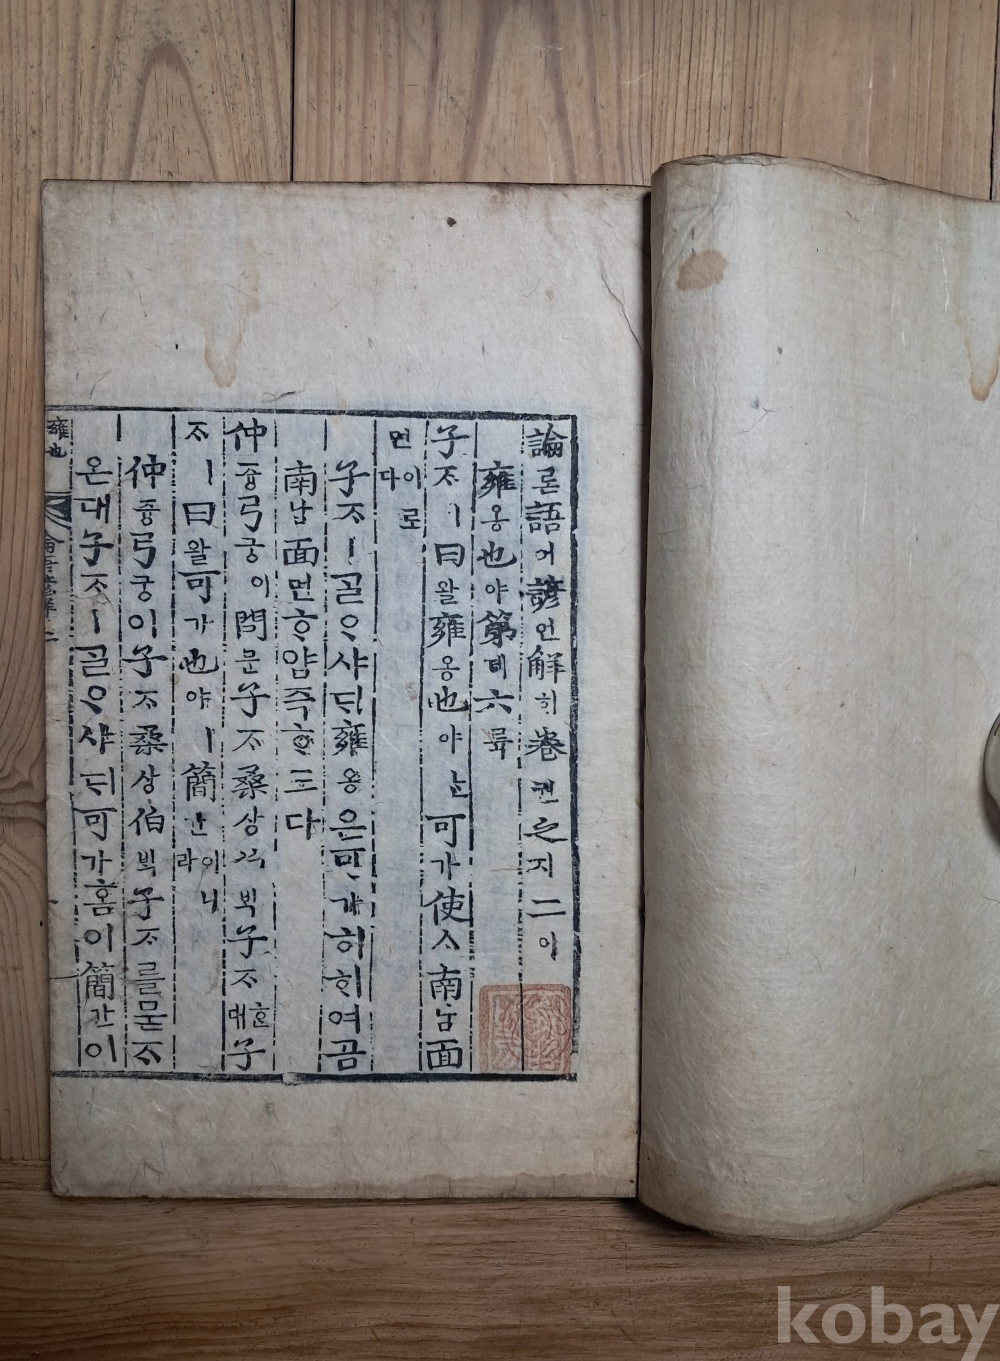 論론語어諺언解ᄒᆡ卷권之지二이
雍옹也야第뎨六륙
子ᄌᆞㅣ曰왈雍옹也야ᄂᆞᆫ可가使ᄉᆞ南남面
면이로다
子ᄌᆞㅣᄀᆞᆯᄋᆞ샤ᄃᆡ雍옹은可가히ᄒᆞ여곰
南남面면ᄒᆞ얌즉ᄒᆞ도다
仲즁弓궁이問문子ᄌᆞ桑상伯ᄇᆡᆨ子ᄌᆞᄒᆞᆫ대子
ᄌᆞㅣ曰왈可가也야ㅣ簡간이니라
仲즁弓궁이子ᄌᆞ桑상伯ᄇᆡᆨ子ᄌᆞ를묻ᄌᆞ
온대子ᄌᆞㅣᄀᆞᆯᄋᆞ샤ᄃᆡ可가홈이簡간이
雍也
kobay